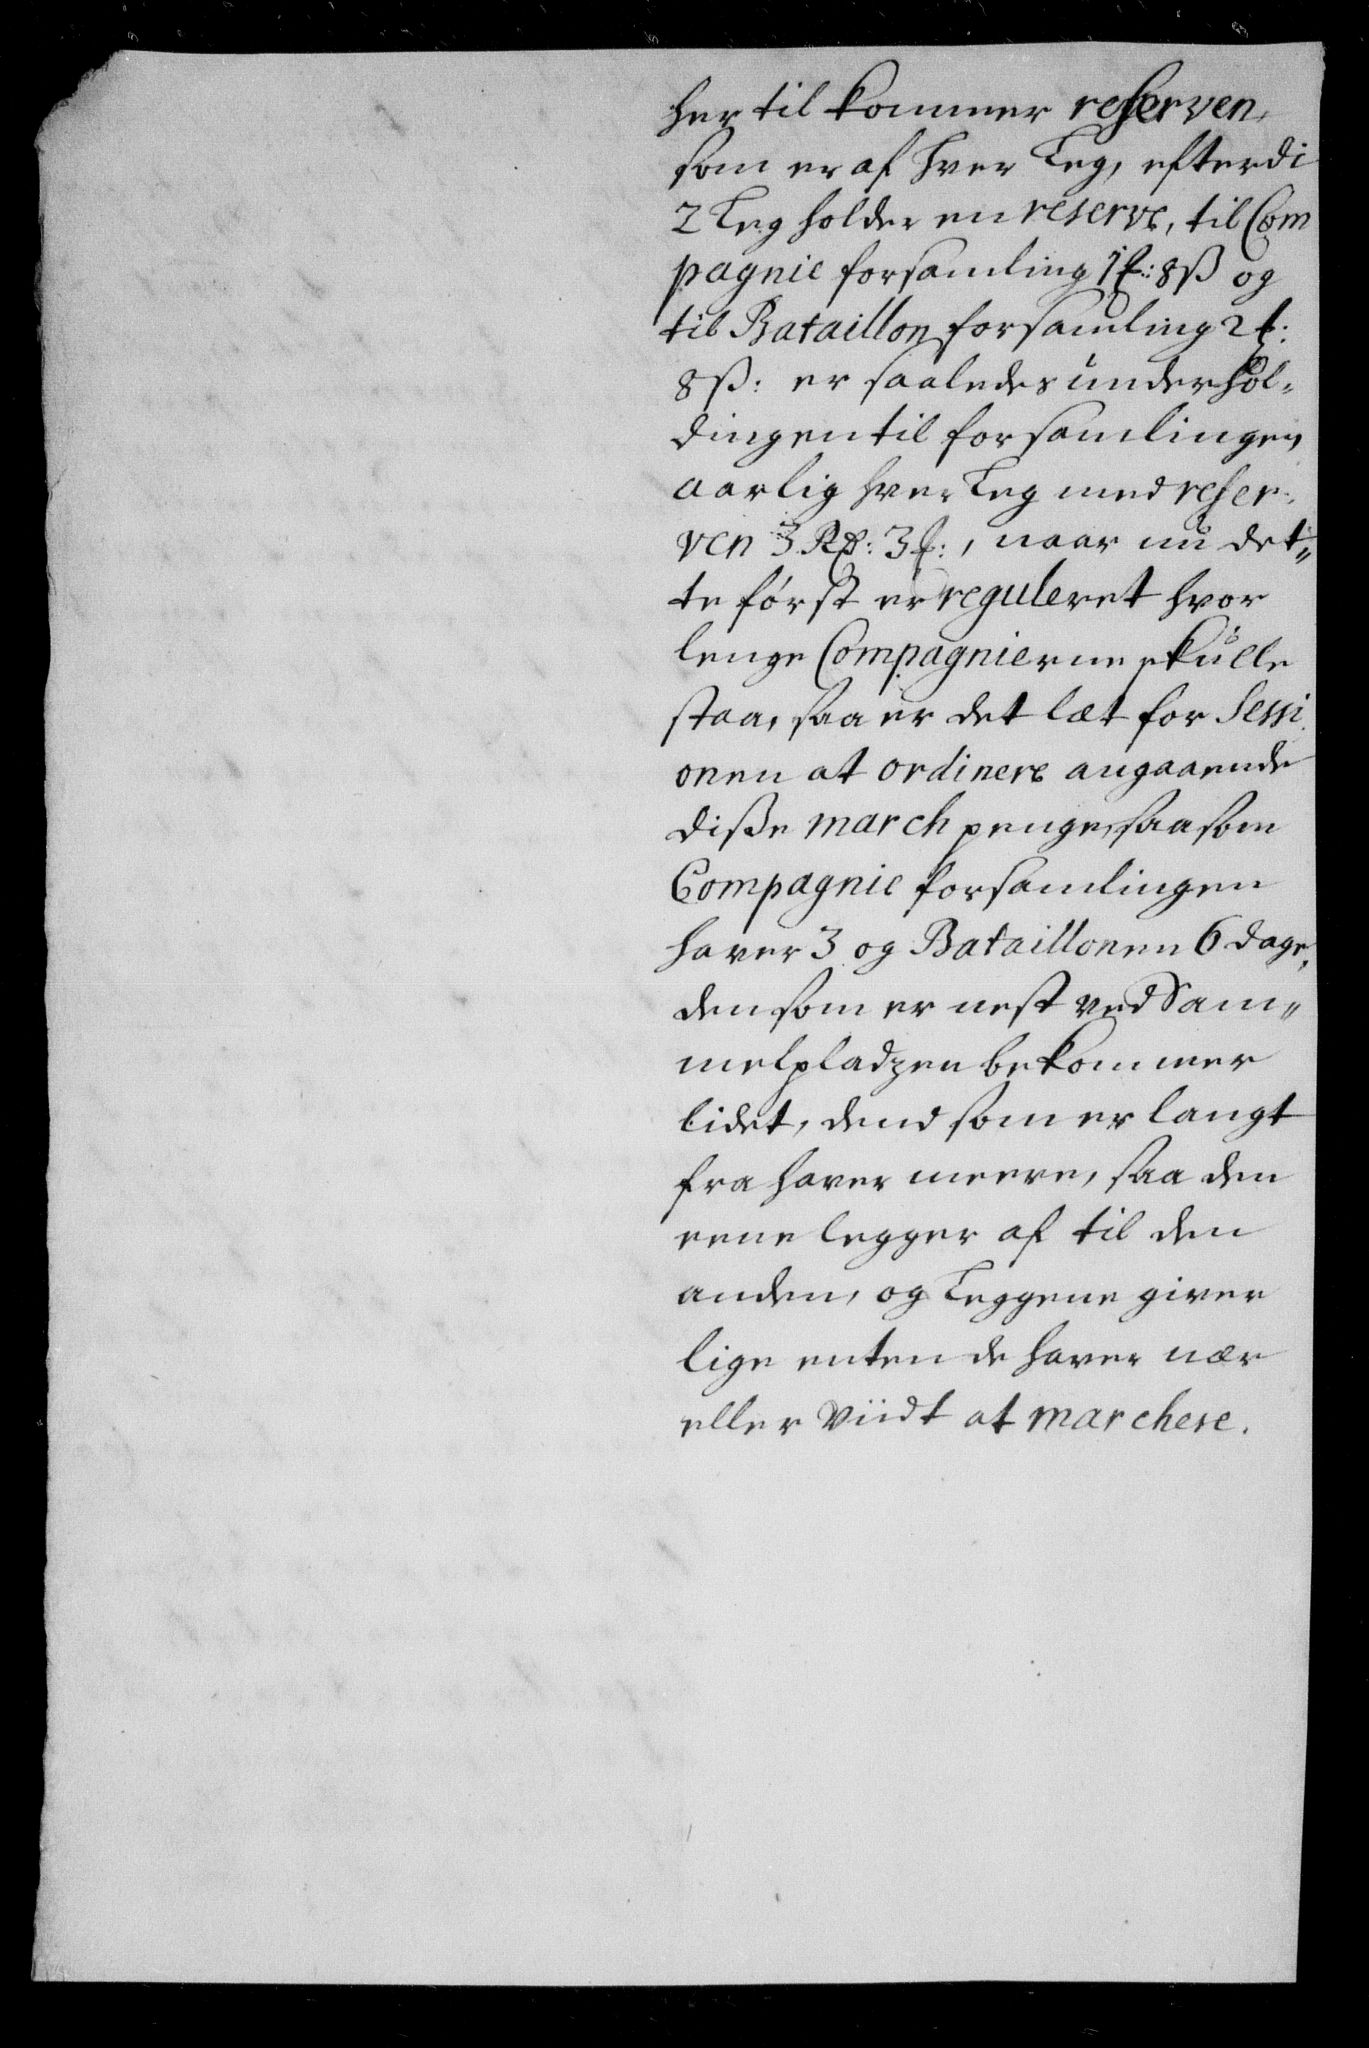 her til kommer reserven,
som er af hver Leg, efterdi
2 Leg holder en reserve, til Com
pagnie forsamling 1 ℔: 8 ß og
til Bataillon forsamling 2 ℔:
8 ß: er saaledes underhol-
dingen til forsamlingen
aarlig hver Leg med reser-
ven 3 Rd: 3 ℔:, naar nu det„
te først er reguleret hvor
lenge Compagnierne skulle
staa, saa er det læt for Sessi
onen at ordinere angaaende
diße march penge, saasom
Compagnie forsamlingen
haver 3 og Bataillonen 6 dage,
den som er nest ved Sam„
melpladzen bekommer
lidet, dend som er langt
fra haver meere, saa den
eene legger af til den
anden, og Leggene giver
lige enten de haver nær
eller viidt at marchere.